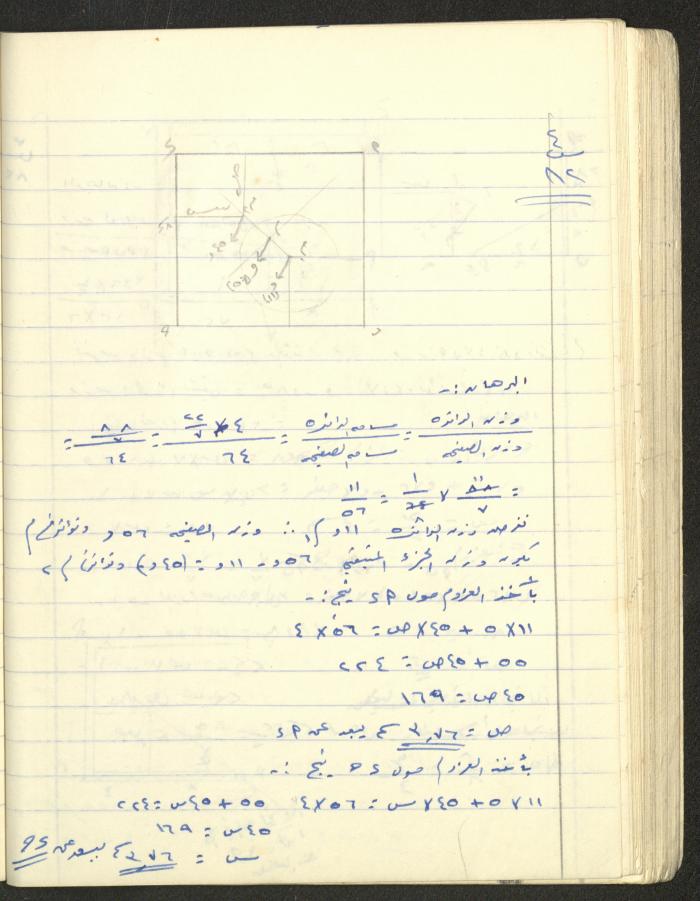 س٤
٢٢
ص
س
م
البرهان :-
وزن الدائرة / وزن الصفيحة = مساحة الدائرة / مساحة الصفيحة = ٤ × ٢٢/٧ / ٦٤ = ٨٨/٧ / ٦٤ =
= ٨٨/٧ × ١/٦٤ = ١١/٥٦
نفرض وزن الدائرة ١١ و م١ ∴ وزن الصفيحة ٥٦ و وتؤثر في م
يكون وزن الجزء المتبقي ٥٦ و - ١١ و = (٤٥ و) وتؤثر في م٢
بأخذ العزوم حول ء ينتج :-
١١ × ٥ + ٤٥ × ص = ٥٦ × ٤
٥٥ + ٤٥ ص = ٢٢٤
٤٥ ص = ١٦٩
ص = ٣,٧٦ يبعد عن ء
بأخذ العزوم حول ء ح ينتج :-
١١ × ٥ + ٤٥ × س = ٥٦ × ٤ ٥٥ + ٤٥ س = ٢٢٤
٤٥ س = ١٦٩
س = ٣,٧٦ يبعد عن ء ح